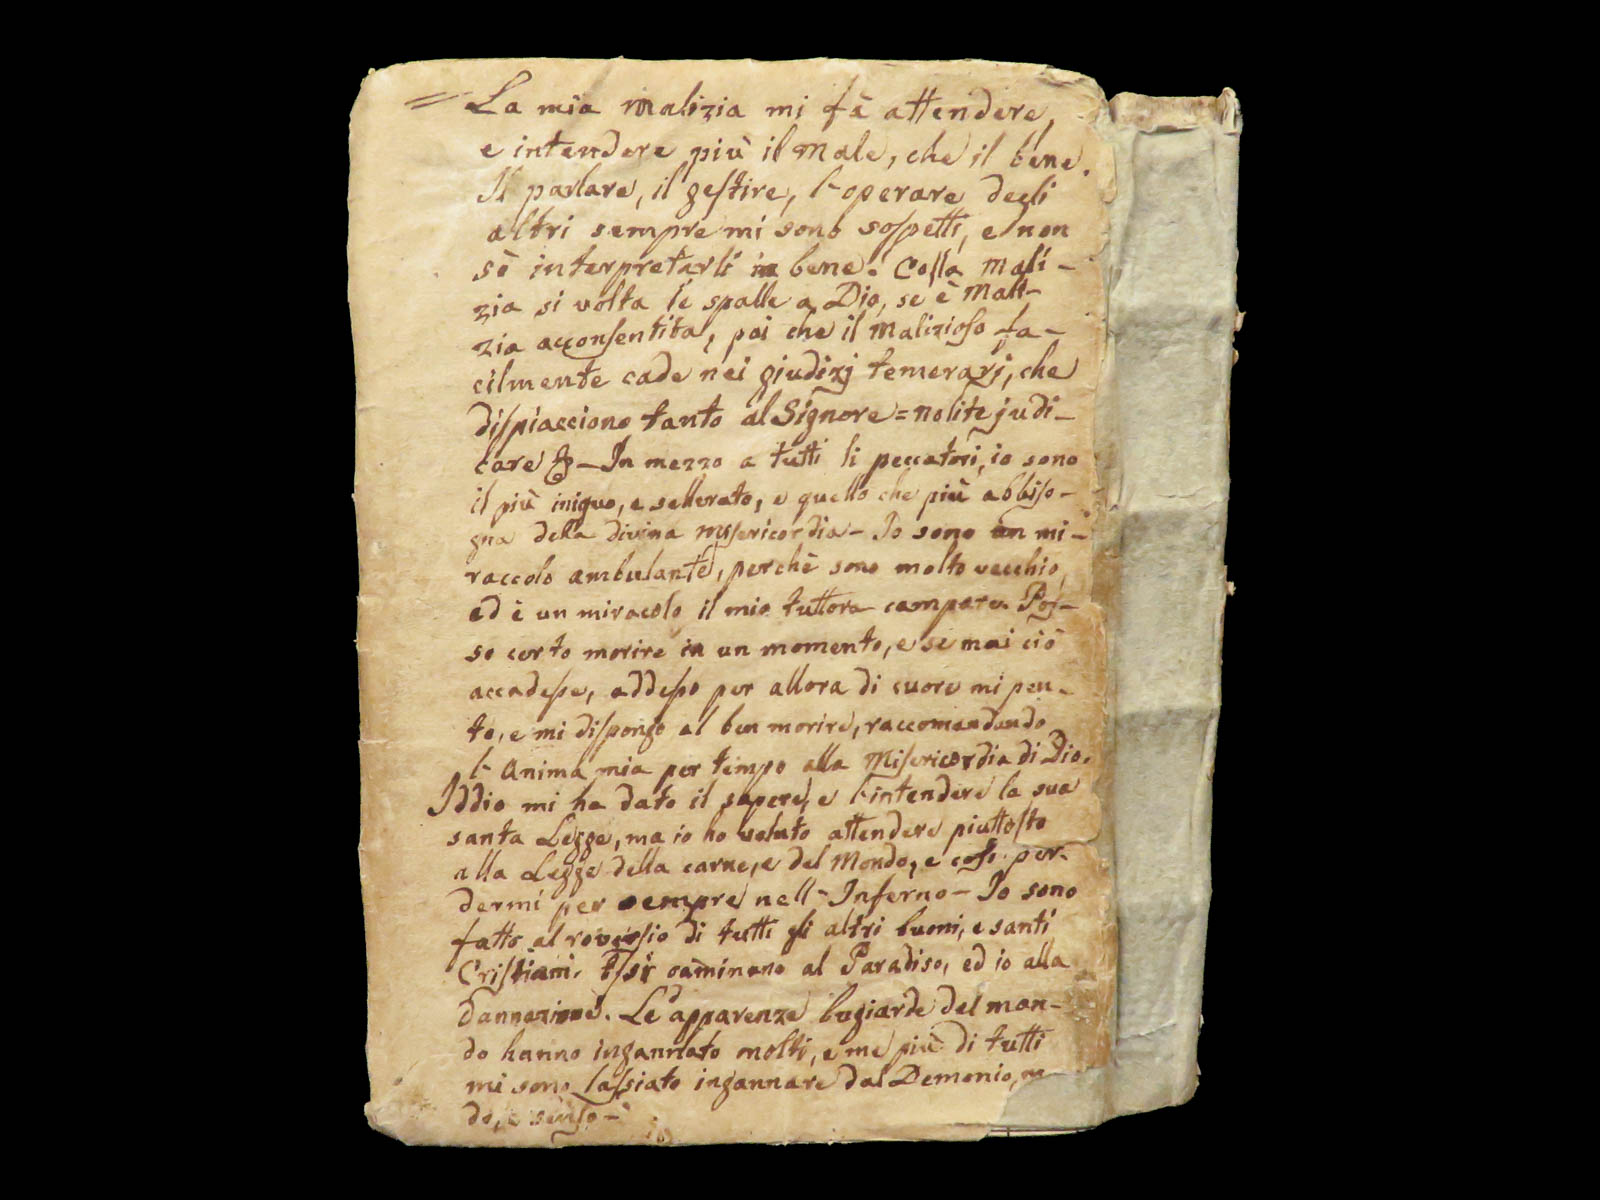 = La mia malizia mi fà attendere,
e intendere più il Male, che il bene.
Il parlare, il gestire, l'operare degli
altri sempre mi sono sospetti, e non
sò interpretarli in bene. Colla Mali-
zia si volta le spalle a Dio, se è Mali-
zia acconsentita, poi che il Malizioso fa-
cilmente cade nei giudizj temerarj, che
dispiacciono tanto al Signore = nolite judi-
care &c - In mezzo a tutti li peccatori, io sono
il più iniquo, e sellerato, e quello che più abbiso-
gna della divina Misericordia - Io sono un mi-
raccolo ambulante, perchè sono molto vecchio,
ed è un miracolo il mio tuttora campare. Pos-
so certo morire in un momento, e se mai ciò
accadesse, addesso per allora di cuore mi pen-
to, e mi dispongo al ben morire, raccomandando
l'Anima mia per tempo alla Misericordia di Dio.
Iddio mi ha dato il sapere, e l'intendere la sua
santa Legge, ma io ho voluto attendere piuttosto
alla Legge della carne, e del Mondo, e così per-
dermi per sempre nell'Inferno - Io sono
fatto al rovescio di tutti gli altri buoni, e santi
Cristiani. Essi caminano al Paradiso, ed io alla
dannazione. Le apparenze bugiarde del mon-
do hanno ingannato molti, e me più di tutti
mi sono lassiato ingannare dal Demonio,
do, e senso -